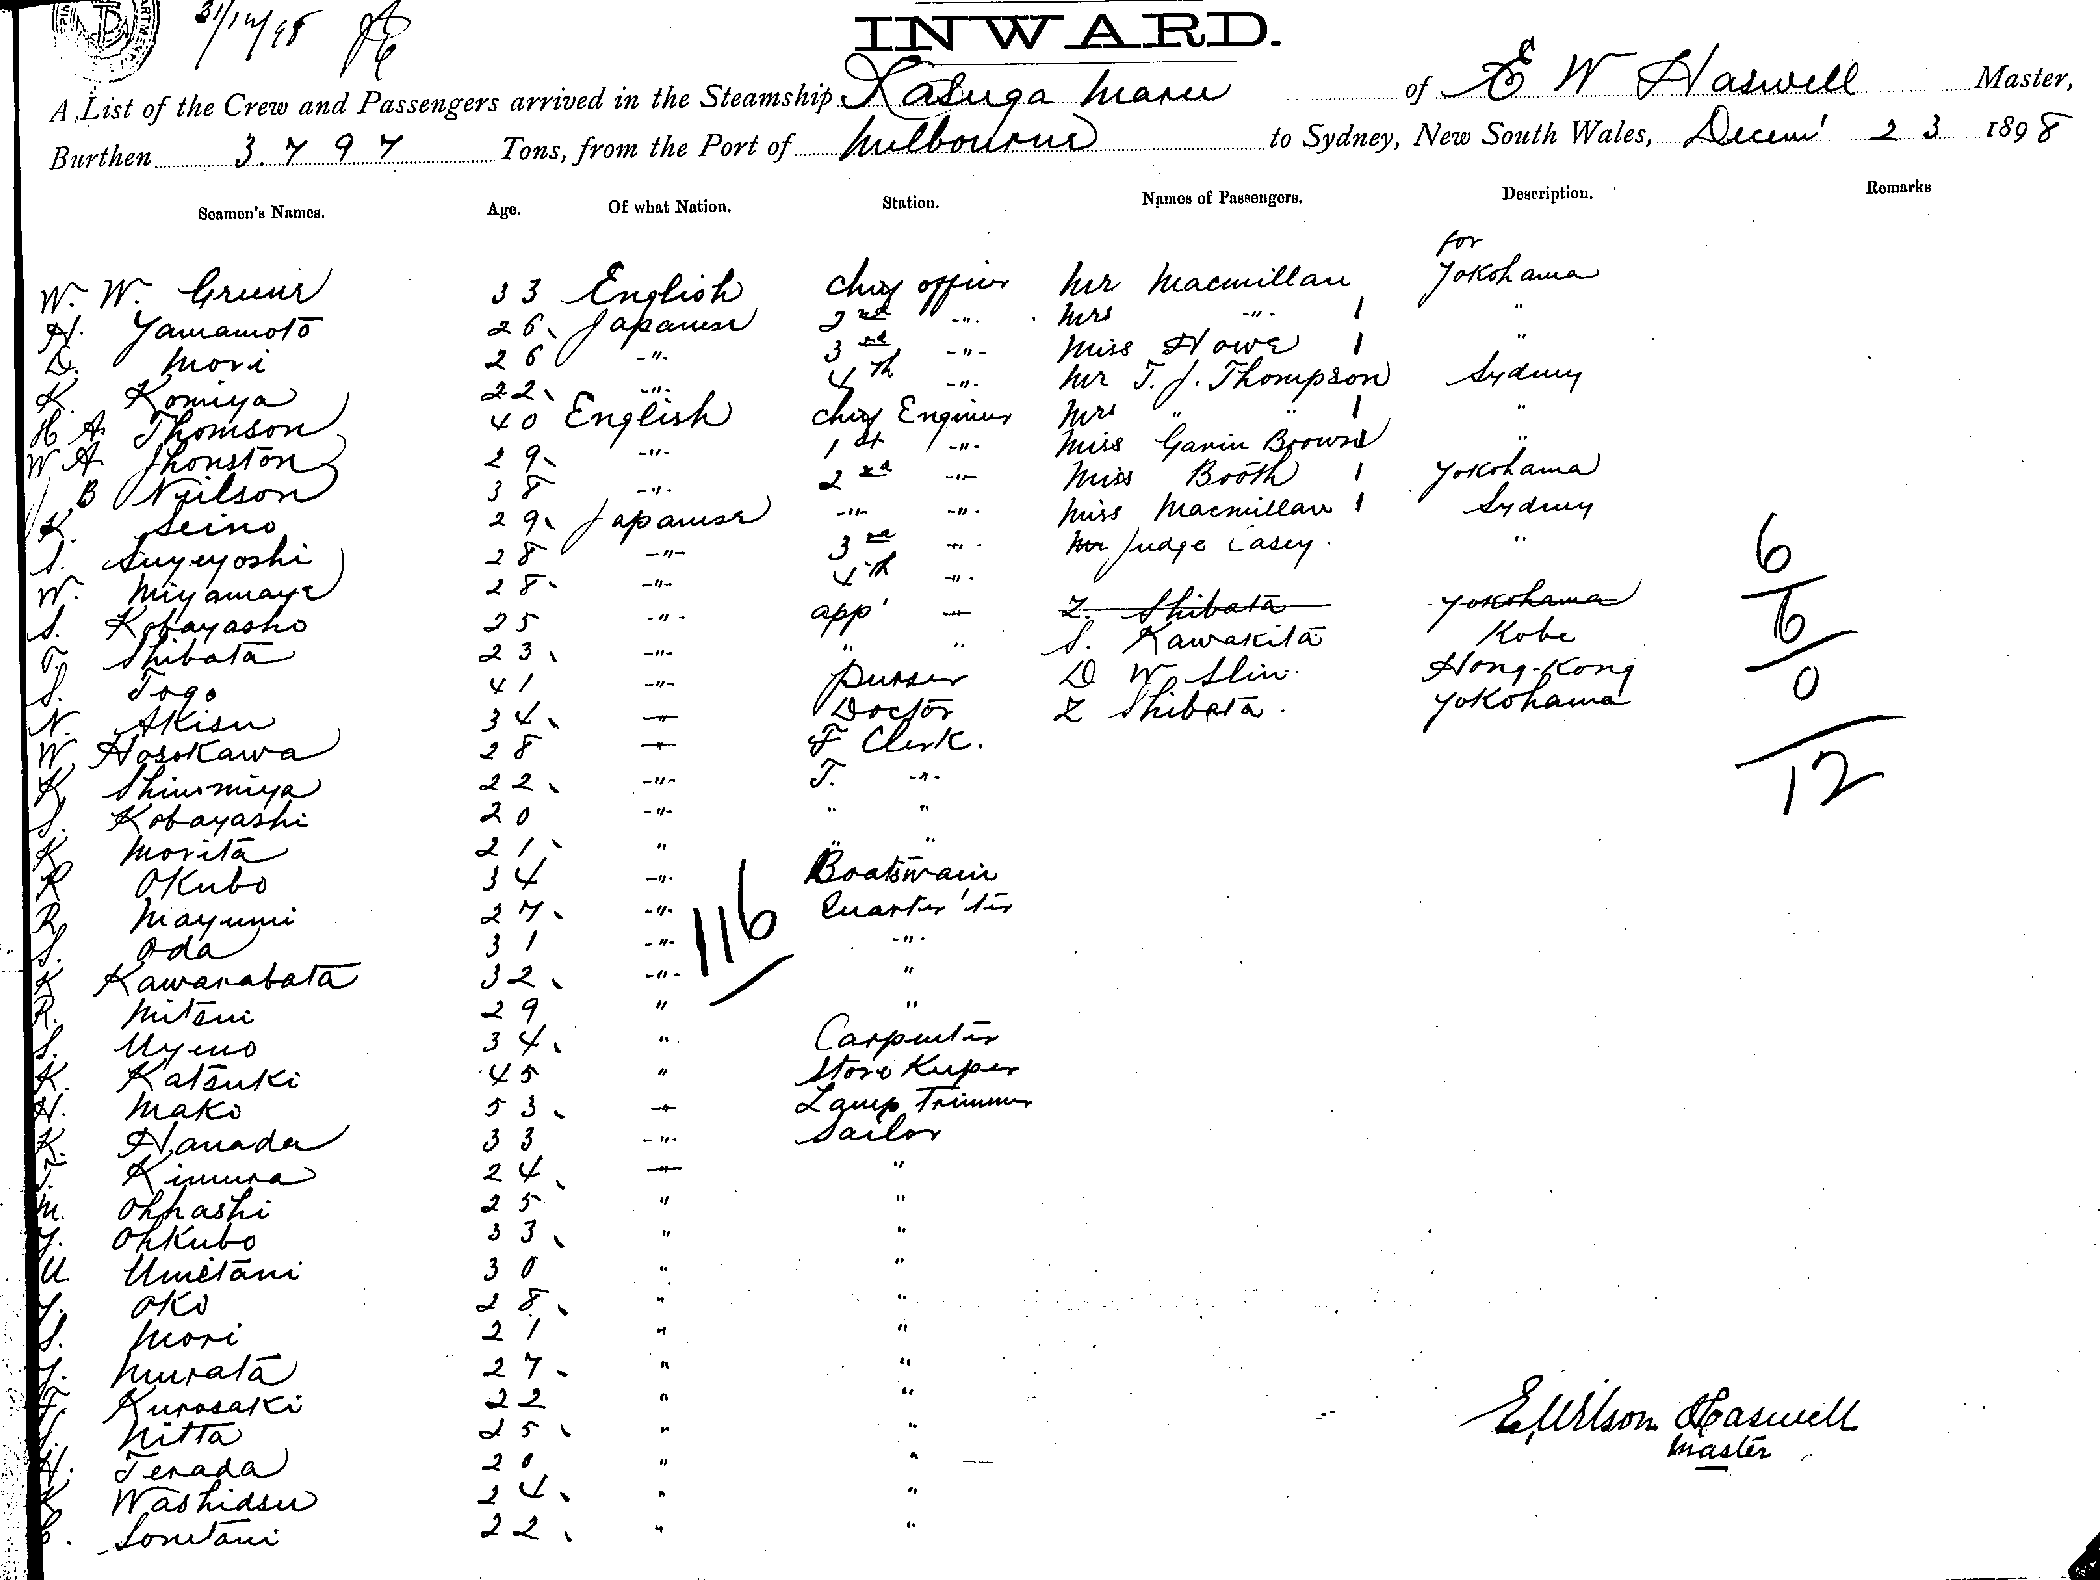 31/12/98
INWARD.
A List of the Crew and Passengers arrived in the Steamship Kasuga Maru of E W Haswell Master,
Burthen 3.797 Tons, from the Port of Melbourne to Sydney, New South Wales, Decem' 23 1898
Seamen's Names. Age. Of what Nation. Station. Names of Passengers. Description. Remarks
for
W. W. Greene 33 English Chief officer Mr Macmillan Yokohama
H. Yamamoto 26 Japanese 2nd -"- Mrs -"- 1 "
D. Mori 26 -"- 3rd -"- Miss Howe 1 "
K. Komiya 22 -"- 4th -"- Mr T. J. Thompson Sydney
H A Thomson 40 English Chief Engineer Mrs " " 1 "
W A Jhonston 29 -"- 1st -"- Miss Gavin Brown "
J B Neilson 38 -"- 2nd -"- Miss Booth 1 Yokohama
K. Seino 29 Japanese -"- -"- Miss Macmillan 1 Sydney
S. Suyeyoshi 28 -"- 3rd -"- Mr Judge Casey. "
W. Miyamaye 28 -"- 4th -"-
S. Kobayasho 25 -"- app' -"- Z. Shibata Yokohama
T. Shibata 23 -"- " " S. Kawakita Kobe
S. Togo 41 -"- Purser D W Slin. Hong-Kong
N. Akisu 34 -"- Doctor Z Shibata. Yokohama
W. Hosokawa 28 -"- F Clerk.
K Shinomiya 22 -"- T. -"-
S. Kobayashi 20 -"- " "
K Morita 21 " " "
K Okubo 34 -"- Boatswain
R. Mayumi 27 -"- Quarter 'ter
S. Oda 31 -"- -"-
K Kawarabata 32 -"- "
R. Mitsui 29 " "
S. Uyeno 34 " Carpenter
K. Katsuki 45 " Store Keeper
H. Mako 53 -"- Lamp Trimmer
K. Hanada 33 -"- Sailor
T. Kimura 24 -"- "
M. Ohhashi 25 " "
Y. Ohkubo 33 " "
U. Umetani 30 " "
Y. Oko 28 " "
S. Mori 21 " "
Y. Murata 27 " "
F. Kurosaki 22 " "
S. Nitta 25 " "
H. Terada 20 " "
K Washidsu 24 " "
Sonetani 22 " "
116
6
6
0
12
E, Wilson Haswell
Master